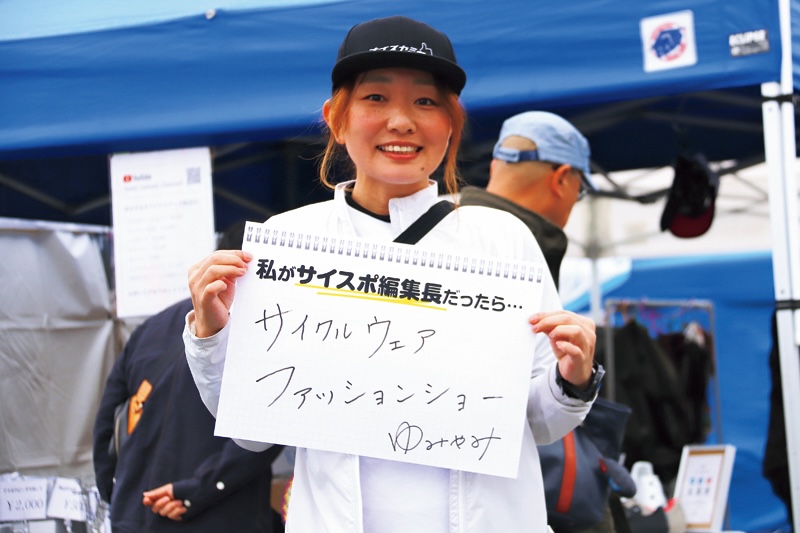 ナイスカミ
KUPIE
YouTube
私がサイスポ編集長だったら…
サイクルウェア
ファッションショー
ゆみやみ
¥2,000